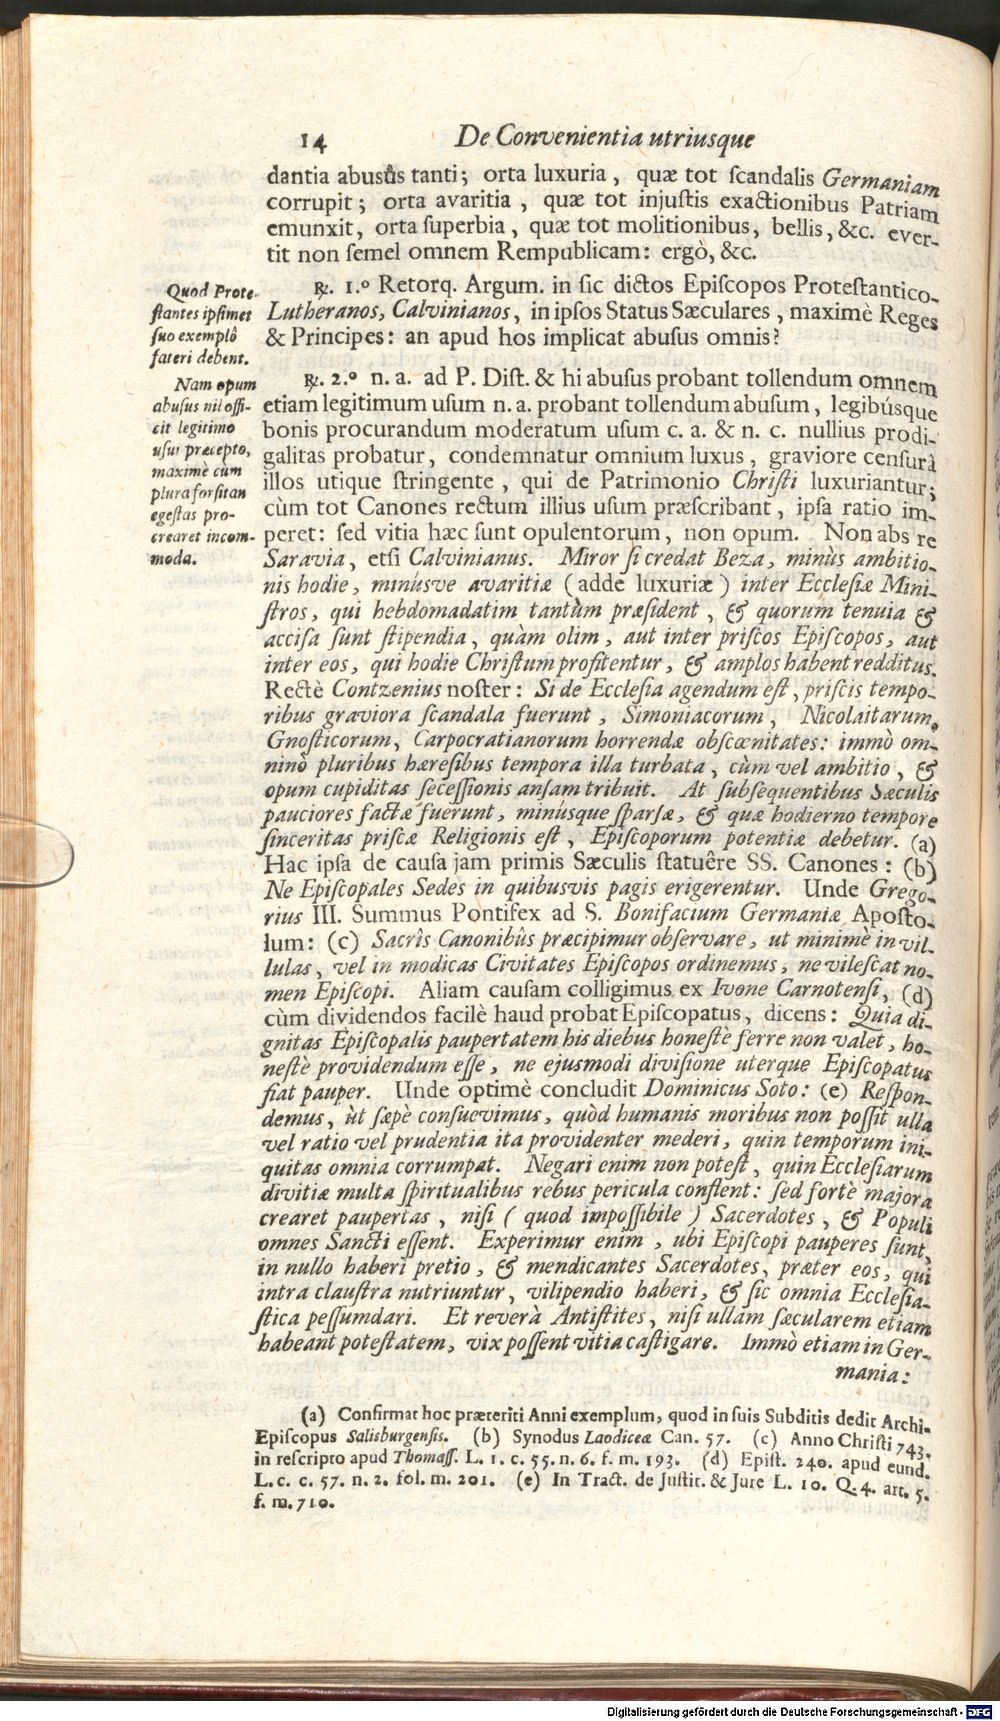 14 De Convenientia utriusque
dantia abusûs tanti; orta luxuria, quæ tot ſcandalis Germaniam
corrupit; orta avaritia, quæ tot injuſtis exactionibus Patriam
emunxit, orta ſuperbia, quæ tot molitionibus, bellis, &c. ever-
tit non ſemel omnem Rempublicam: ergò, &c.
Quod Prote-
ſtantes ipſimet
ſuo exemplô
fateri debent.
℞. 1.º Retorq. Argum. in ſic dictos Epiſcopos Proteſtantico-
Lutheranos, Calvinianos, in ipſos Status Sæculares, maximè Reges
& Principes: an apud hos implicat abuſus omnis?
Nam opum
abuſus nil offi-
cit legitimo
uſui præcepto,
maximè cùm
plura forſitan
egeſtas pro-
crearet incom-
moda.
℞. 2.º n. a. ad P. Diſt. & hi abuſus probant tollendum omnem
etiam legitimum uſum n. a. probant tollendum abuſum, legibúsque
bonis procurandum moderatum uſum c. a. & n. c. nullius prodi-
galitas probatur, condemnatur omnium luxus, graviore cenſurâ
illos utique ſtringente, qui de Patrimonio Chriſti luxuriantur;
cùm tot Canones rectum illius uſum præſcribant, ipſa ratio im-
peret: ſed vitia hæc ſunt opulentorum, non opum. Non abs re
Saravia, etſi Calvinianus. Miror ſi credat Beza, minùs ambitio-
nis hodie, minúsve avaritiæ (adde luxuriæ) inter Eccleſiæ Mini-
ſtros, qui hebdomadatim tantùm præſident, & quorum tenuia &
acciſa ſunt ſtipendia, quàm olim, aut inter priſcos Epiſcopos, aut
inter eos, qui hodie Chriſtum profitentur, & amplos habent redditus.
Rectè Contzenius noſter: Si de Eccleſia agendum eſt, priſcis tempo-
ribus graviora ſcandala fuerunt, Simoniacorum, Nicolaitarum,
Gnoſticorum, Carpocratianorum horrendæ obſcœnitates: immò om-
ninò pluribus hæreſibus tempora illa turbata, cùm vel ambitio, &
opum cupiditas ſeceſſionis anſam tribuit. At ſubſequentibus Sæculis
pauciores factæ fuerunt, minúsque ſparſæ, & quæ hodierno tempore
ſinceritas priſcæ Religionis eſt, Epiſcoporum potentiæ debetur. (a)
Hac ipſa de cauſa jam primis Sæculis ſtatuêre SS. Canones: (b)
Ne Epiſcopales Sedes in quibusvis pagis erigerentur. Unde Grego-
rius III. Summus Pontifex ad S. Bonifacium Germaniæ Apoſto-
lum: (c) Sacrîs Canonibûs præcipimur obſervare, ut minimè in vil-
lulas, vel in modicas Civitates Epiſcopos ordinemus, ne vileſcat no-
men Epiſcopi. Aliam cauſam colligimus ex Ivone Carnotenſi, (d)
cùm dividendos facilè haud probat Epiſcopatus, dicens: Quia di-
gnitas Epiſcopalis paupertatem his diebus honeſtè ferre non valet, ho-
neſtè providendum eſſe, ne ejusmodi diviſione uterque Epiſcopatus
fiat pauper. Unde optimè concludit Dominicus Soto: (e) Reſpon-
demus, ùt ſæpè conſuevimus, quòd humanis moribus non poſſit ulla
vel ratio vel prudentia ita providenter mederi, quin temporum ini-
quitas omnia corrumpat. Negari enim non poteſt, quin Eccleſiarum
divitiæ multa ſpiritualibus rebus pericula conflent: ſed fortè majora
crearet paupertas, niſi (quod impoſſibile) Sacerdotes, & Populi
omnes Sancti eſſent. Experimur enim, ubi Epiſcopi pauperes ſunt,
in nullo haberi pretio, & mendicantes Sacerdotes, præter eos, qui
intra clauſtra nutriuntur, vilipendio haberi, & ſic omnia Eccleſia-
ſtica peſſumdari. Et reverà Antiſtites, niſi ullam ſæcularem etiam
habeant poteſtatem, vix poſſent vitia caſtigare. Immò etiam in Ger-
mania:
(a) Confirmat hoc præteriti Anni exemplum, quod in ſuis Subditis dedit Archi-
Epiſcopus Salisburgenſis. (b) Synodus Laodiceæ Can. 57. (c) Anno Chriſti 743.
in reſcripto apud Thomaſſ. L. 1. c. 55. n. 6. f. m. 193. (d) Epiſt. 240. apud eund.
L. c. c. 57. n. 2. fol. m. 201. (e) In Tract. de Juſtit. & Jure L. 10. Q. 4. art. 5.
f. m. 710.
Digitalisierung gefördert durch die Deutsche Forschungsgemeinschaft - DFG